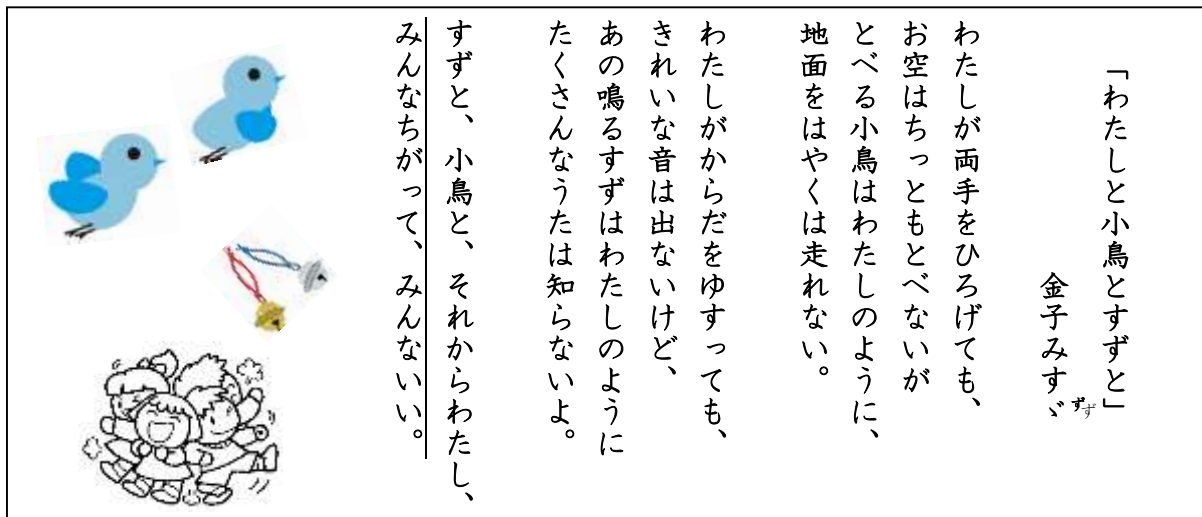 「わたしと小鳥とすずと」
金子みすゞ
ずず
わたしが両手をひろげても、
お空はちっともとべないが
とべる小鳥はわたしのように、
地面をはやくは走れない。
わたしがからだをゆすっても、
きれいな音は出ないけど、
あの鳴るすずはわたしのように
たくさんなうたは知らないよ。
すずと、小鳥と、それからわたし、
みんなちがって、みんないい。